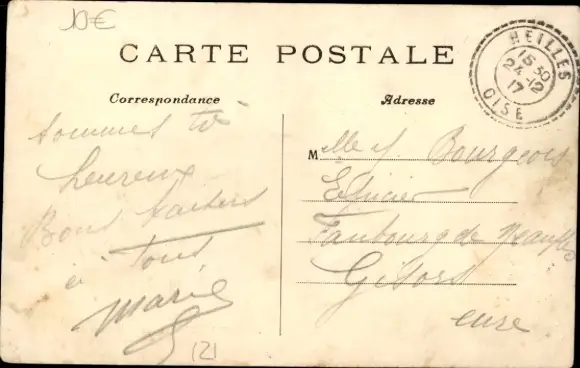 10€
CARTE POSTALE
Correspondance
Adresse
HEILLES
15 30
24 - 12
17
OISE
sommes
heureux
Bons baisers
à tous
Marie
121
Mlle Bourgeois
Epicier
Faubourg de Neaufles
Gisors
eure